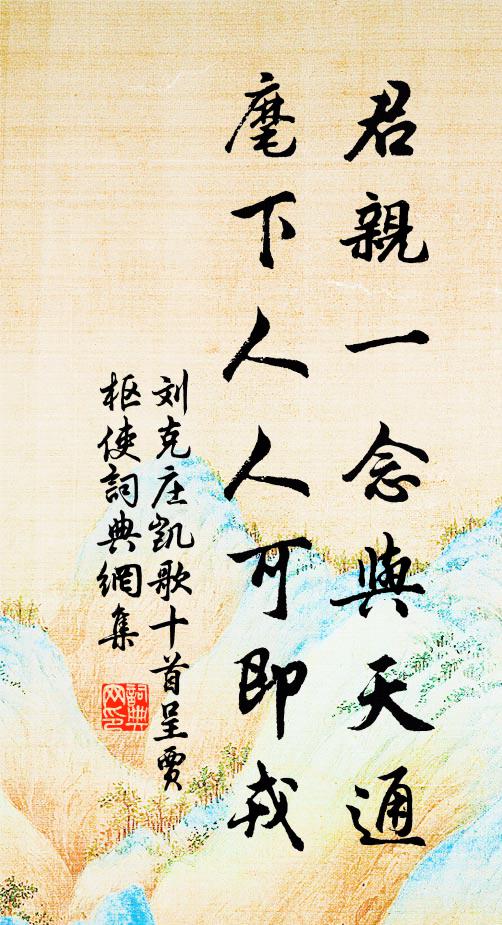 君親一念與天通
麾下人人可即戎
刘克庄凯歌十首呈贾
枢使詞典網集
詞典
网印